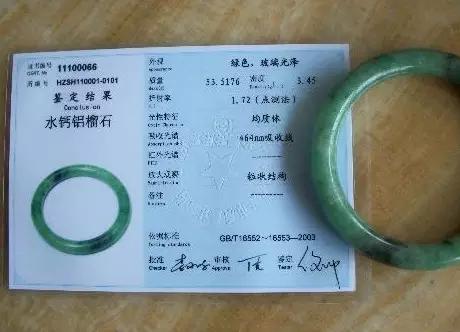 证书编号 11100066
CERT. No
HZSH110001-0101
鉴定结果
Conclusion
水钙铝榴石
外观 绿色，玻璃光泽
Appearance
质量 53.5176 密度 3.45
折射率 1.72（点测法）
光性特征 均质体
吸收光谱 464nm吸收线
红外光谱 ----------
放大观察 粒状结构
备注 ----------
依据标准 GB/T16552～16553—2003
Testing standards
批准 审核 鉴定
Checker Approve Tester